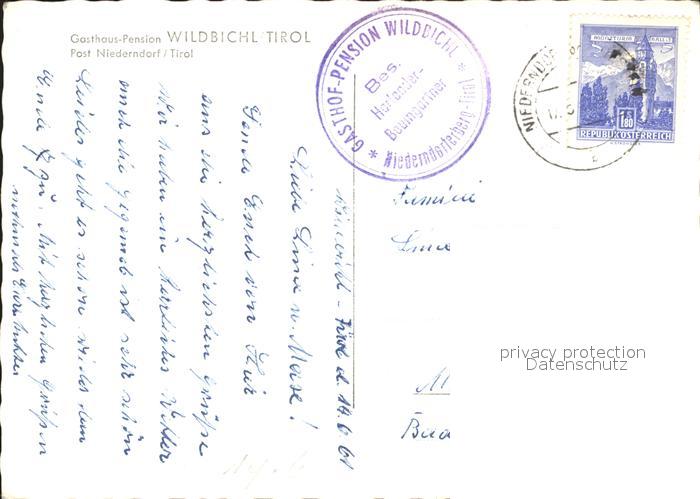 Gasthaus-Pension WILDBICHL TIROL
Post Niederndorf/Tirol
GASTHOF-PENSION WILDBICHL
Bes.
Baumgartner
* Niederndorferberg-Tirol *
NIEDERNDORF
MÜNZTURM HALL i. T.
S 1.80
REPUBLIK ÖSTERREICH
Wildbichl - Tirol d. 14.6.61
Liebe Lina u. Marie!
Sende Euch von Hier
aus die herzlichsten Grüße
Wir haben ein herrliches Wetter
und die Gegend ist sehr schön
Leider geht es schon wieder dem
Ende zu. Mit herzlichen Grüßen
Familie
Bad
privacy protection
Datenschutz